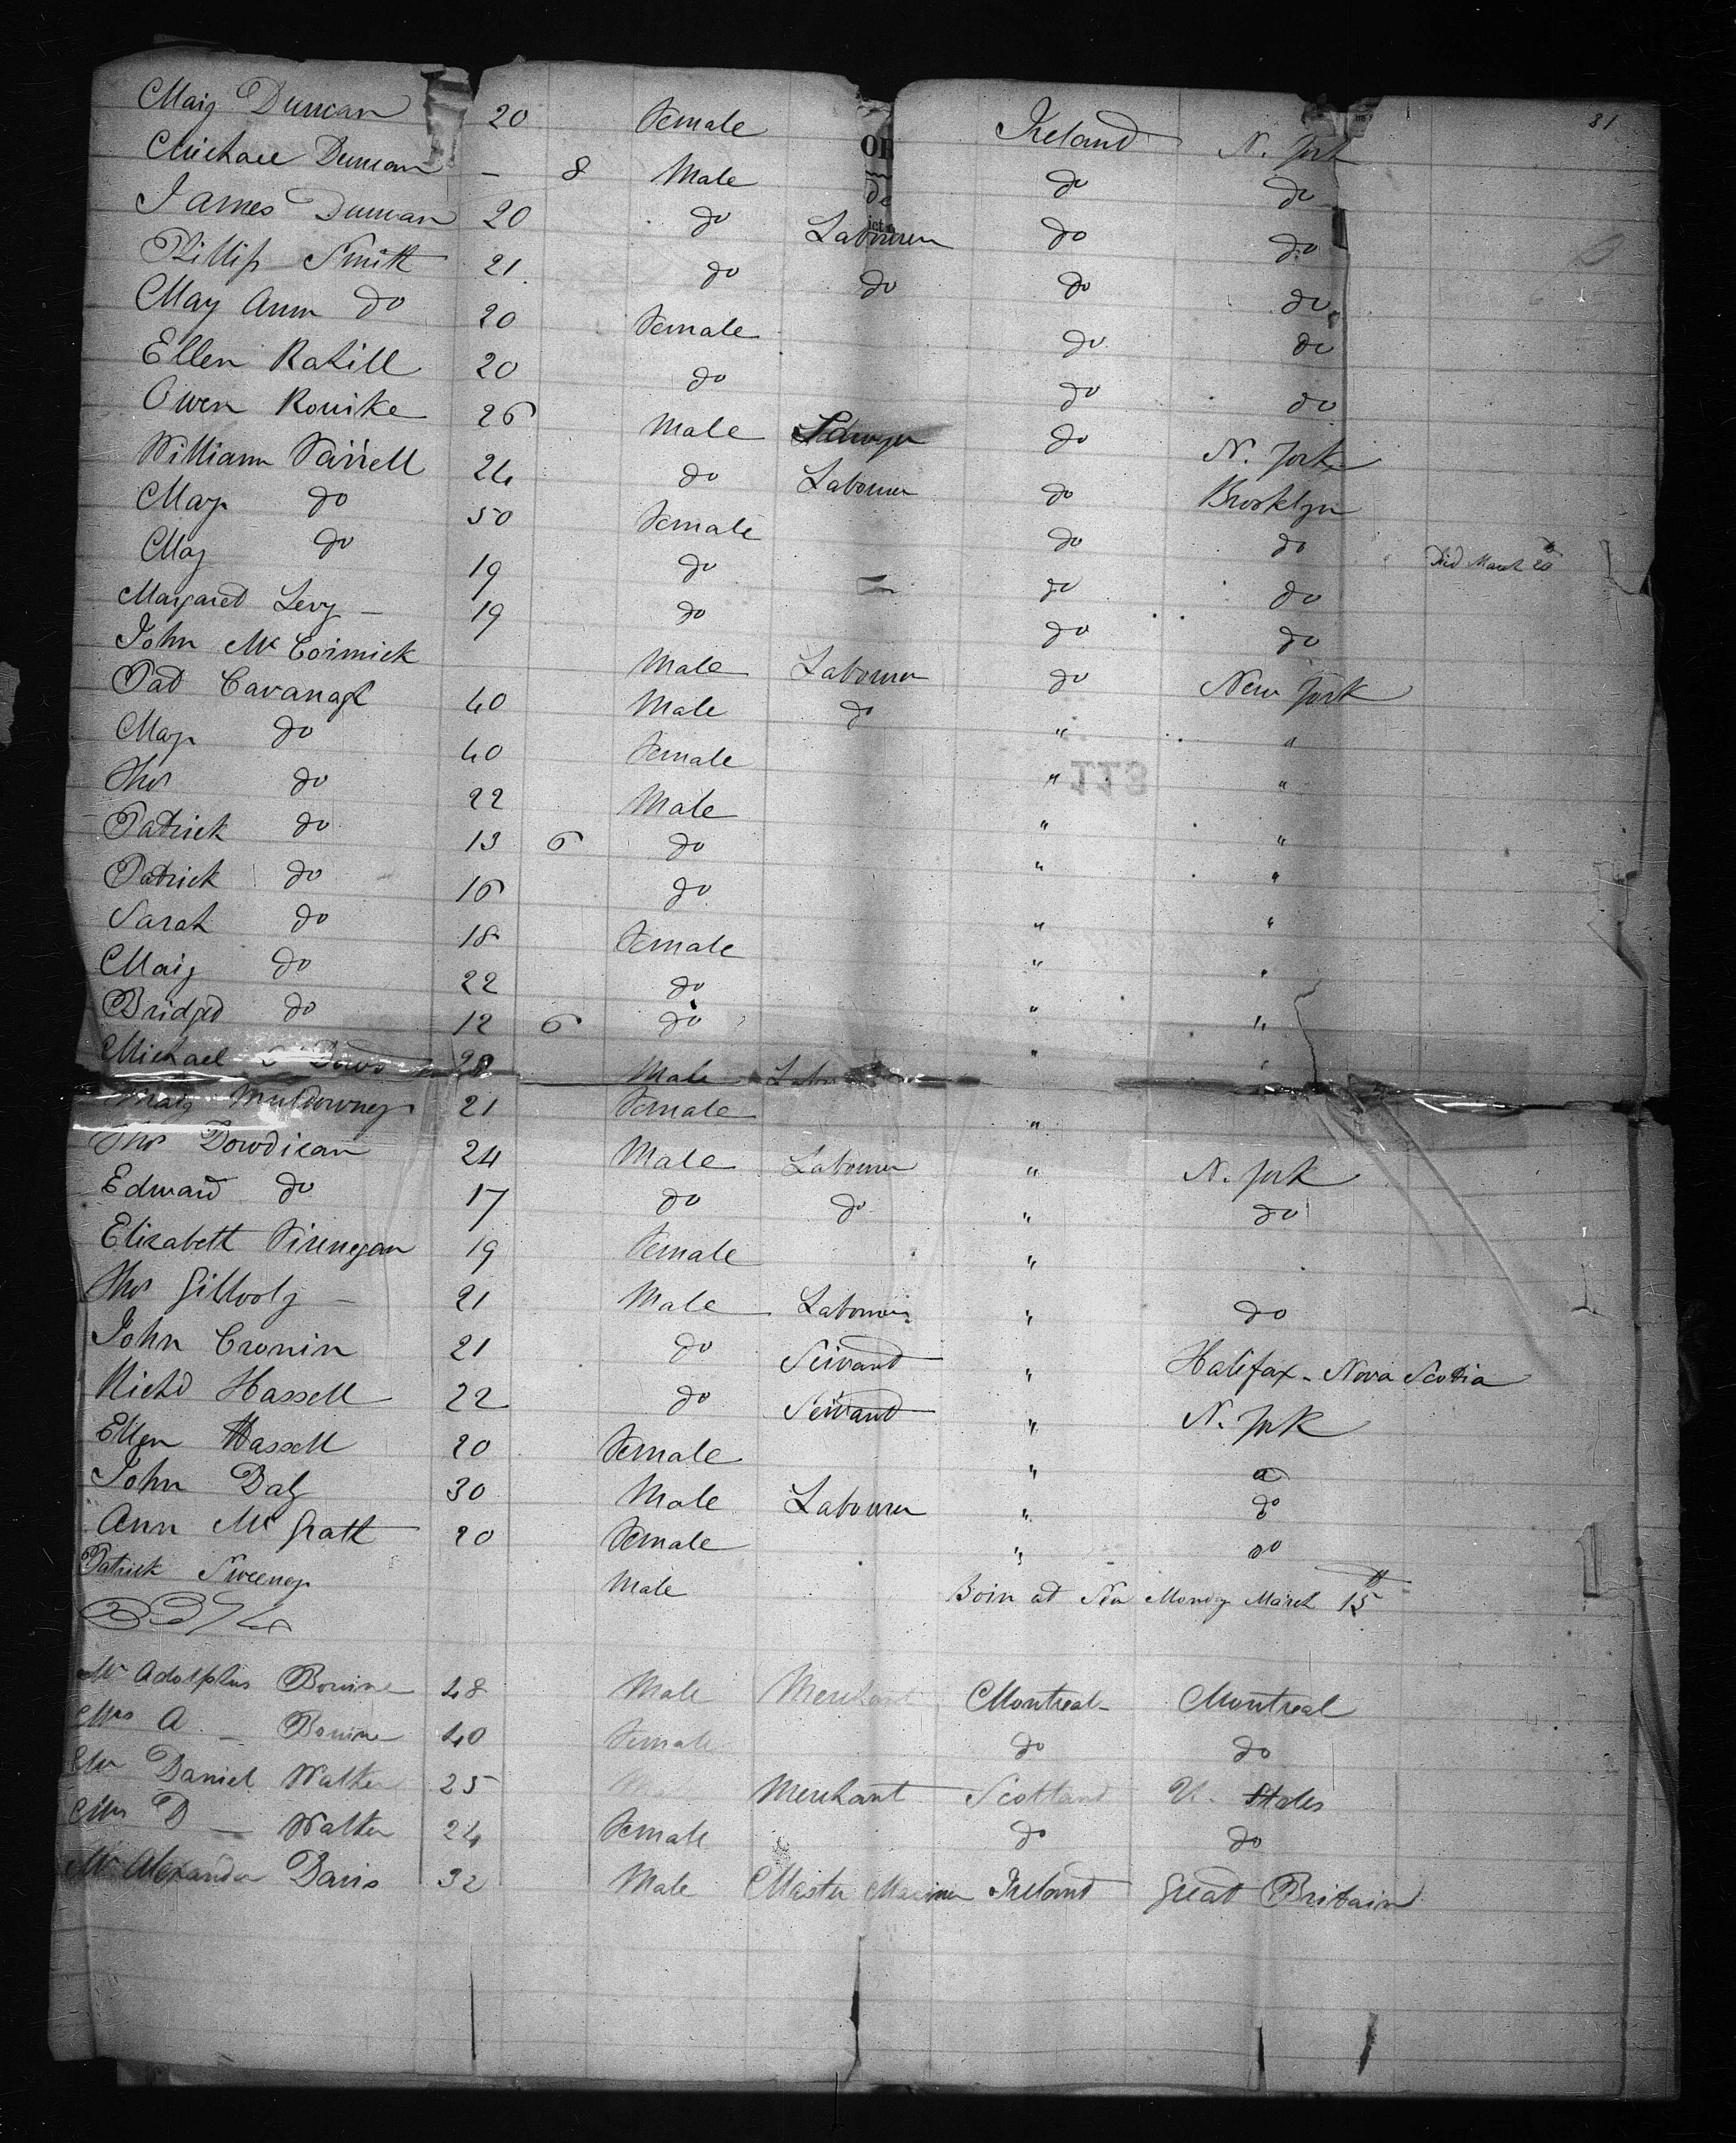 81
Mary Duncan 20 Female Ireland N. York
Michael Duncan - 8 Male do do
James Duncan 20 do Labourer do do
Phillip Smith 21 do do do do
Mary Ann do 20 Female do do
Ellen Rahill 20 do do do
Owen Rourke 26 Male do N. York
William Farrell 24 do Labourer do Brooklyn
Mary do 50 Female do do
Mary do 19 do do do Died March 20
Margaret Levy - 19 do do do
John McCormick Male Labourer do New York
Pat Cavanagh 40 Male do " "
Mary do 40 Female " "
Thos do 22 Male " "
Patrick do 13 6 do " "
Patrick do 16 do " "
Sarah do 18 Female " "
Mary do 22 do " "
Bridget do 12 6 do " "
Michael 28 Male
Mary Muldowney 21 Female "
Thos Dowdican 24 Male Labourer " N. York
Edward do 17 do do " do
Elizabeth Finnegan 19 Female "
Thos Gillooly - 21 Male Labourer " do
John Cronin 21 do Servant " Halifax - Nova Scotia
Richd Hassell 22 do Servant " N. York
Ellen Hassell 20 Female " do
John Daly 30 Male Labourer " do
Ann McGrath 20 Female " do
Patrick Sweeney Male Born at Sea Monday March 15th
Mr Adolphus Bourne 48 Male Merchant Montreal Montreal
Mrs A - Bourne 40 Female do do
Mr Daniel Walker 25 Male Merchant Scotland U. States
Mrs D - Walker 24 Female do do
Mr Alexander Davis 32 Male Master Mariner Ireland Great Britain